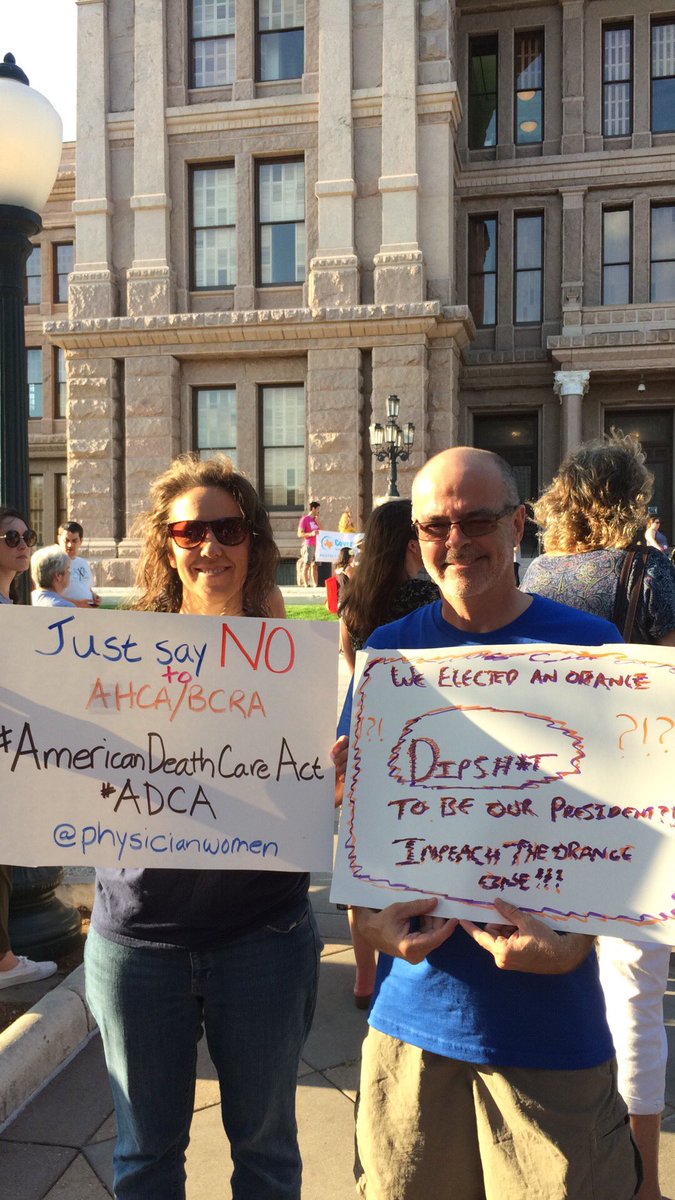 Just say NO
to
AHCA/BCRA
#AmericanDeathCareAct
#ADCA
@physicianwomen
WE ELECTED AN ORANGE
?!
DIPSH*T
?!?
TO BE OUR PRESIDENT?!
IMPEACH THE ORANGE
ONE!!!